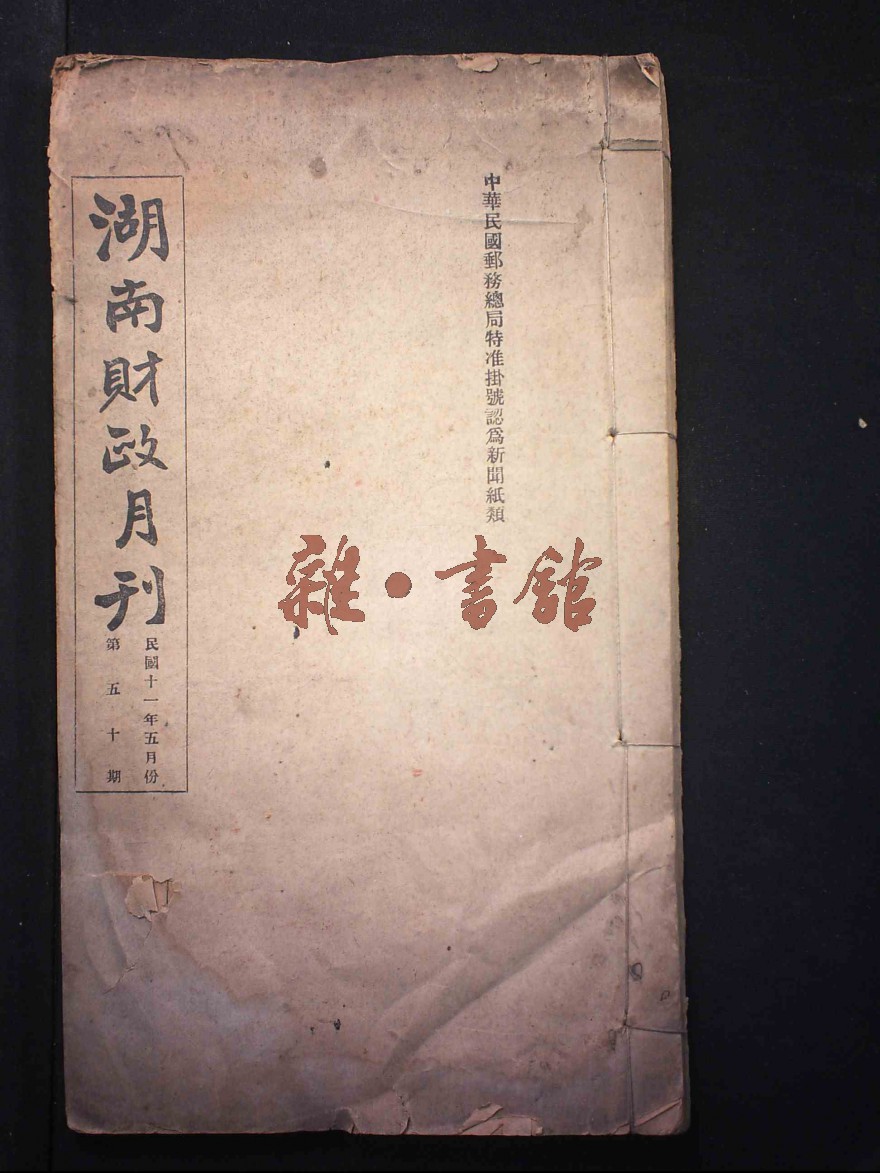 中華民國郵務總局特准掛號認爲新聞紙類
湖南財政月刊
民國十一年五月份
第五十期
雜·書館